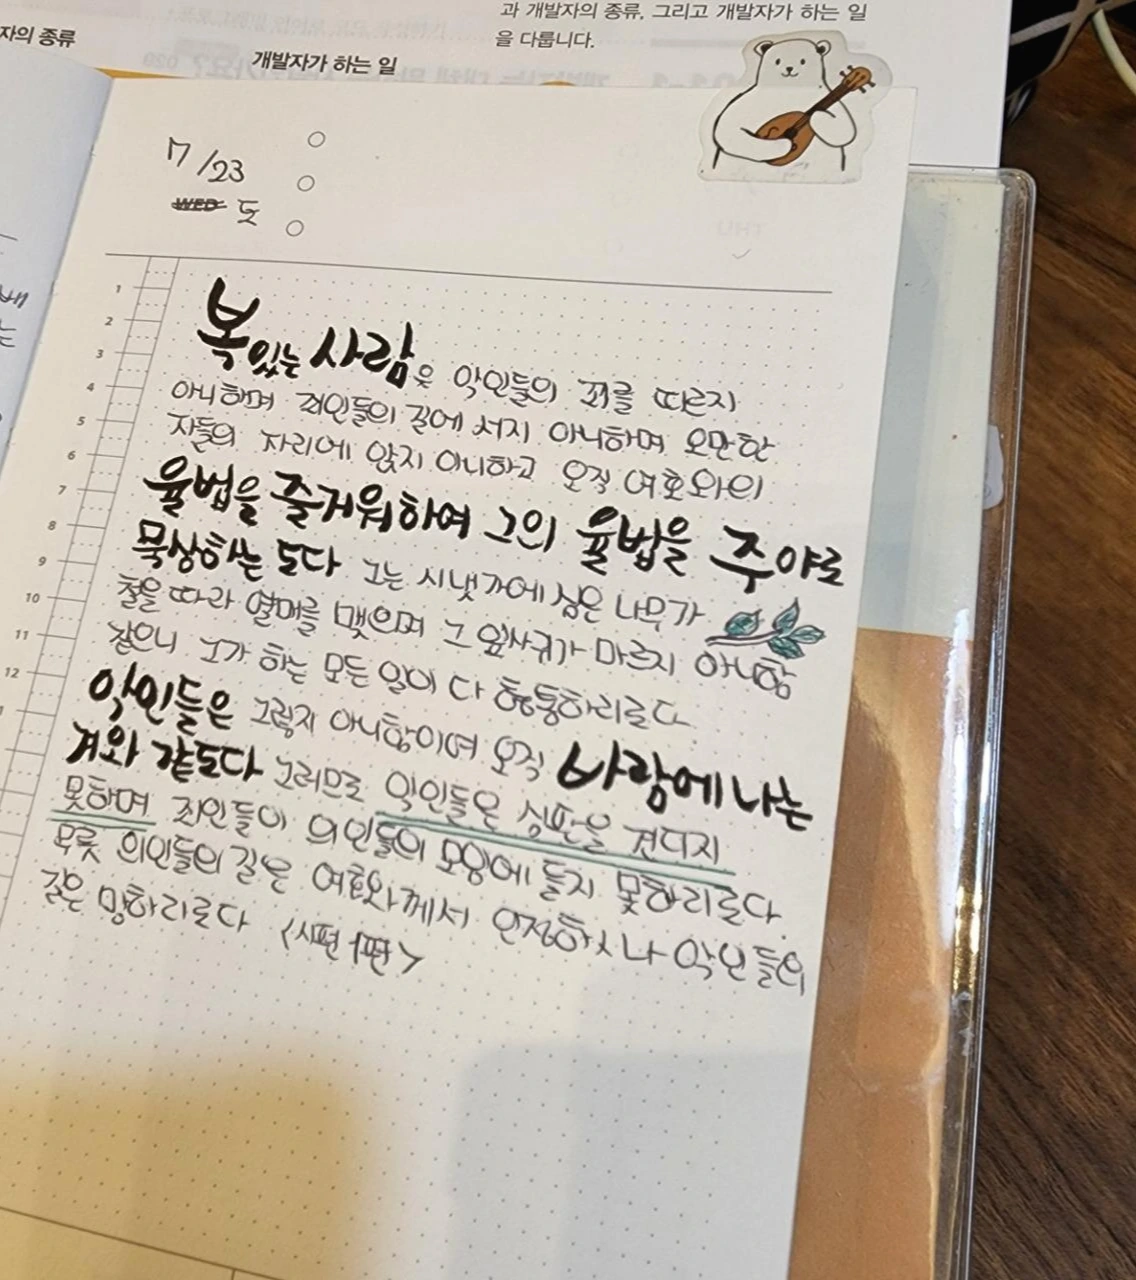 과 개발자의 종류, 그리고 개발자가 하는 일
을 다룹니다.
자의 종류
개발자가 하는 일
7/23
WED 토
THU
1
2
3
4
5
6
7
8
9
10
11
12
복있는 사람은 악인들의 꾀를 따르지
아니하며 죄인들의 길에 서지 아니하며 오만한
자들의 자리에 앉지 아니하고 오직 여호와의
율법을 즐거워하여 그의 율법을 주야로
묵상하는 도다 그는 시냇가에 심은 나무가
철을 따라 열매를 맺으며 그 잎사귀가 마르지 아니함
같으니 그가 하는 모든 일이 다 형통하리로다
악인들은 그렇지 아니함이여 오직 바람에 나는
겨와 같도다 그러므로 악인들은 심판을 견디지
못하며 죄인들이 의인들의 모임에 들지 못하리로다.
무릇 의인들의 길은 여호와께서 인정하시나 악인들의
길은 망하리로다 <시편 1편>